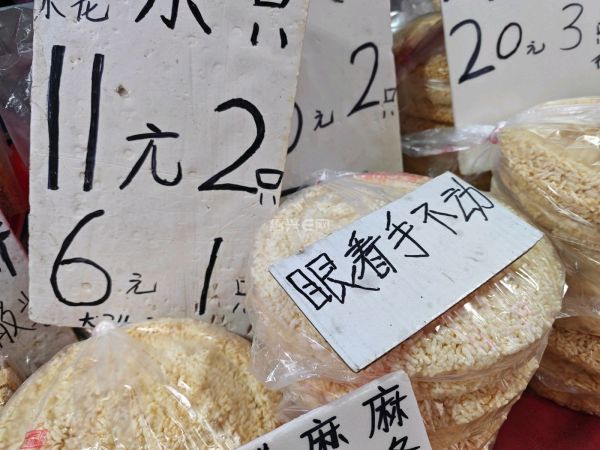 米花 米只
11元2只
6元 1只
元 2只
20元 3
眼看手不动
散
麻 麻